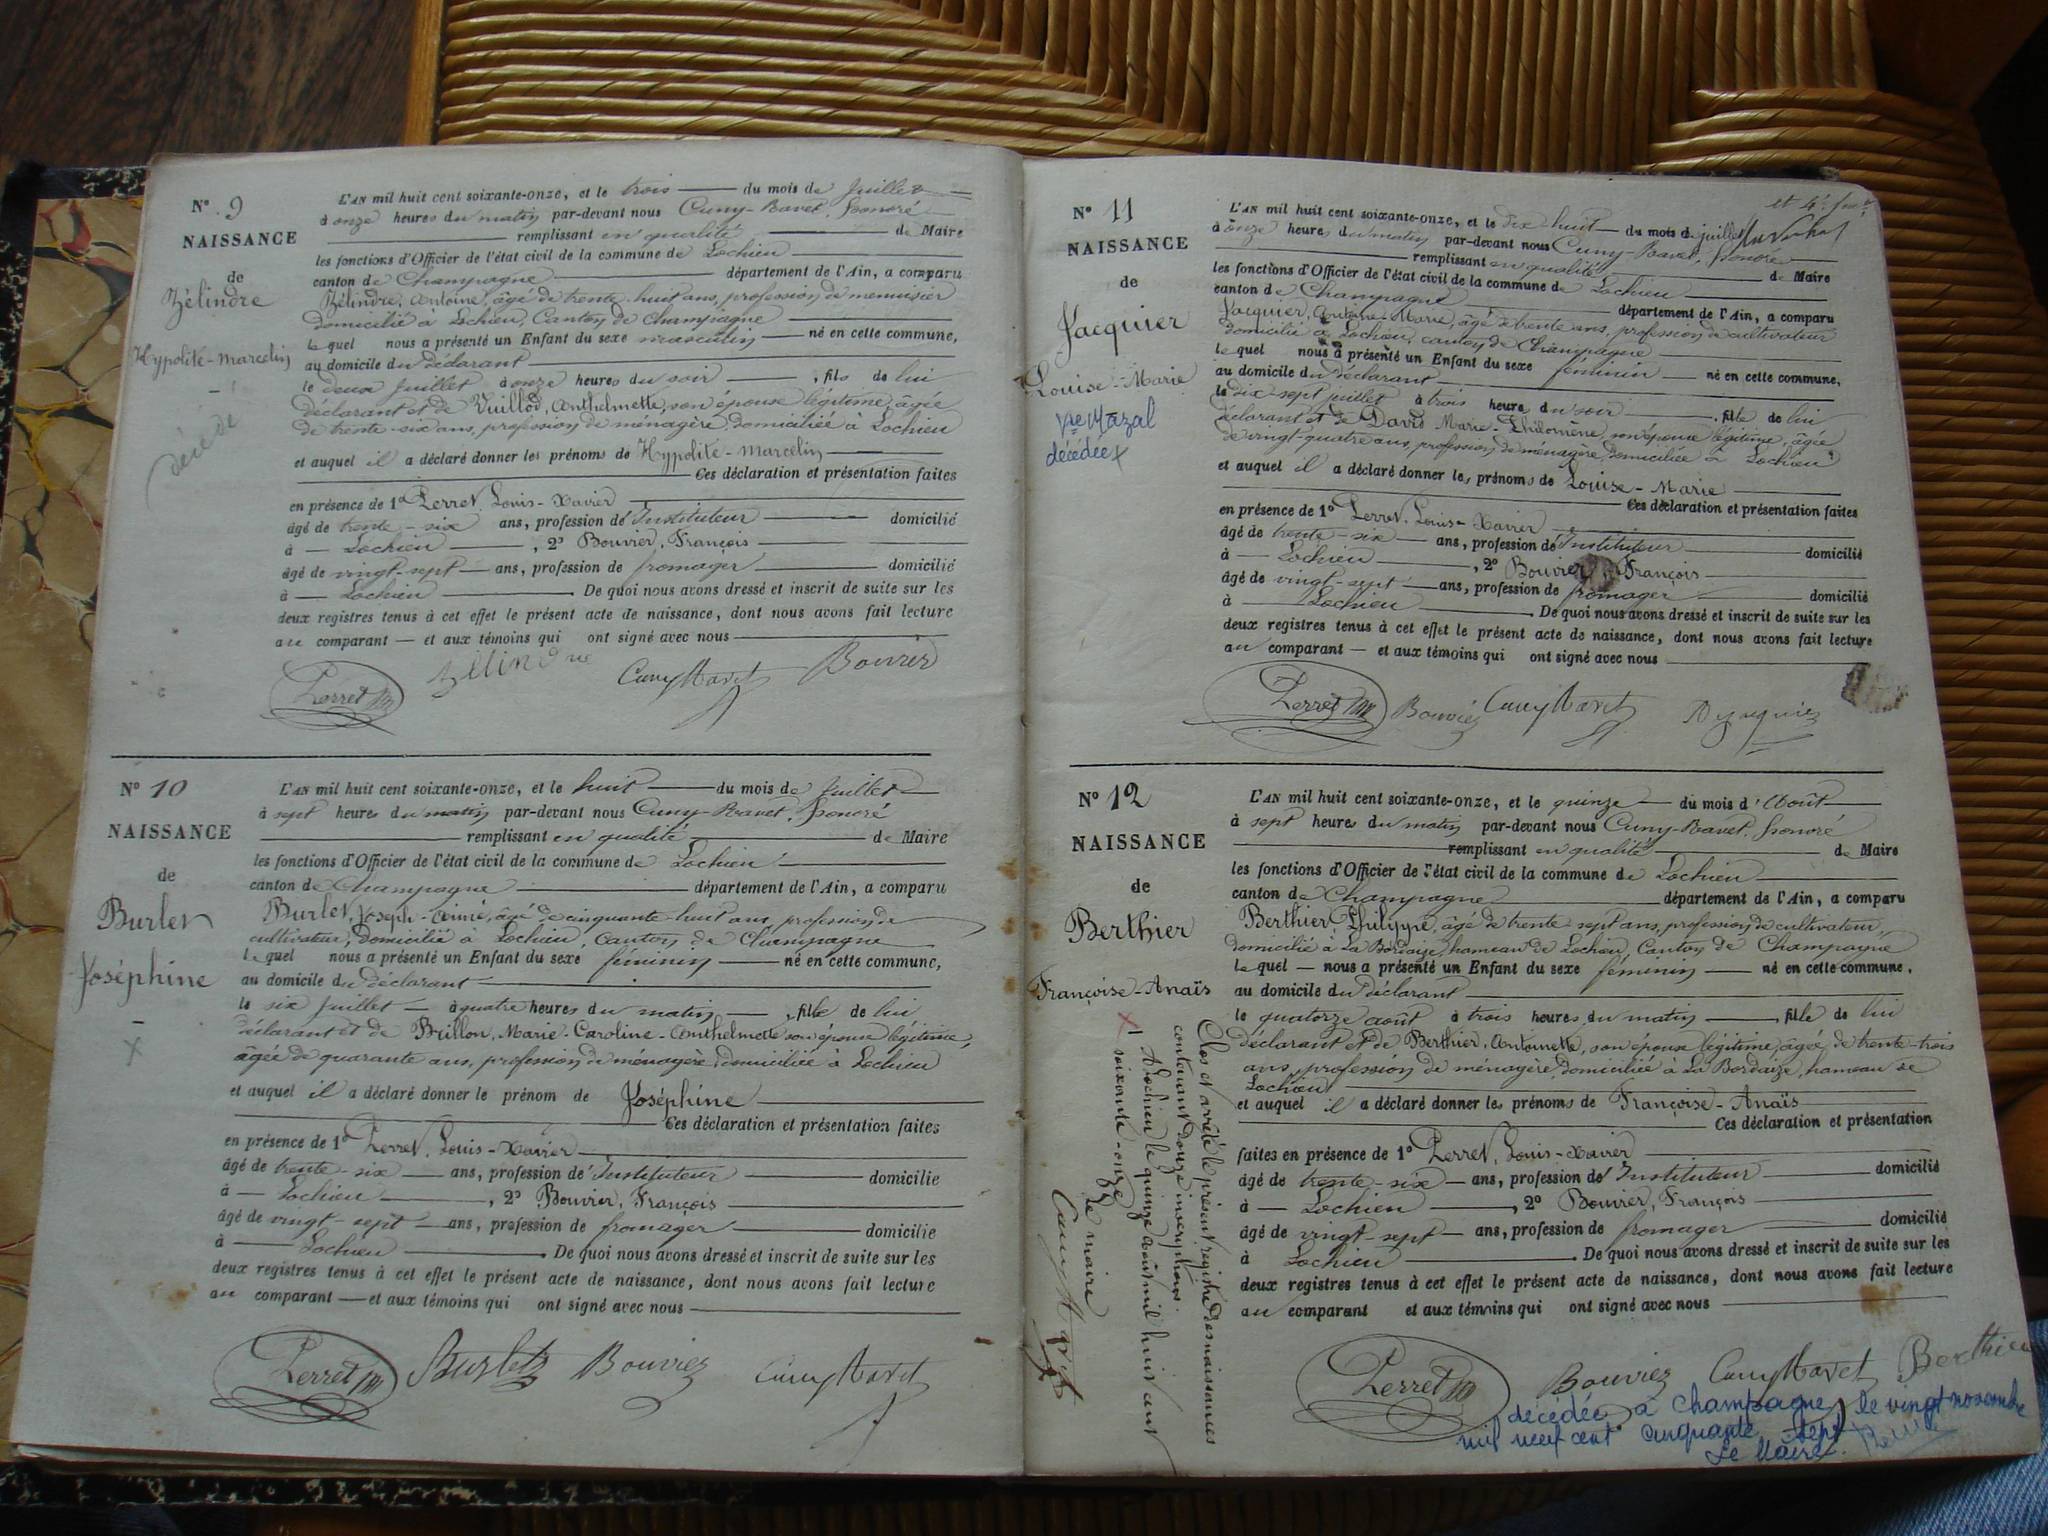 N° 9
NAISSANCE
de
Zélindre
Hypolite-Marcelin
décédé
L'AN mil huit cent soixante-onze, et le trois du mois de juillet
à onze heures du matin par-devant nous Cuny-Ravet, Honoré
remplissant en qualité de Maire
les fonctions d'Officier de l'état civil de la commune de Lochieu
canton de Champagne département de l'Ain, a comparu
Zélindre, Antoine, âgé de trente-huit ans, profession de menuisier
domicilié à Lochieu, Canton de Champagne
le quel nous a présenté un Enfant du sexe masculin né en cette commune,
au domicile du déclarant
le deux juillet à onze heures du soir, fils de lui
déclarant et de Vuillod, Anthelmette, son épouse légitime, âgée
de trente-six ans, profession de ménagère, domiciliée à Lochieu
et auquel il a déclaré donner les prénoms de Hypolite-Marcelin
Ces déclaration et présentation faites
en présence de 1° Perret, Louis-Xavier
âgé de trente-six ans, profession de Instituteur domicilié
à Lochieu, 2° Bouvier, François
âgé de vingt-sept ans, profession de fromager domicilié
à Lochieu De quoi nous avons dressé et inscrit de suite sur les
deux registres tenus à cet effet le présent acte de naissance, dont nous avons fait lecture
au comparant et aux témoins qui ont signé avec nous
Perret Zélindre Cuny Ravet Bouvier
N° 10
NAISSANCE
de
Burlet
Joséphine
X
L'AN mil huit cent soixante-onze, et le huit du mois de juillet
à sept heures du matin par-devant nous Cuny-Ravet, Honoré
remplissant en qualité de Maire
les fonctions d'Officier de l'état civil de la commune de Lochieu
canton de Champagne département de l'Ain, a comparu
Burlet, Joseph-Aimé, âgé de cinquante-huit ans, profession de
cultivateur, domicilié à Lochieu, Canton de Champagne
le quel nous a présenté un Enfant du sexe féminin né en cette commune,
au domicile du déclarant
le six juillet à quatre heures du matin, fille de lui
déclarant et de Brillon, Marie-Caroline-Anthelmette son épouse légitime,
âgée de quarante ans, profession de ménagère, domiciliée à Lochieu
et auquel il a déclaré donner le prénom de Joséphine
Ces déclaration et présentation faites
en présence de 1° Perret, Louis-Xavier
âgé de trente-six ans, profession de Instituteur domicilié
à Lochieu, 2° Bouvier, François
âgé de vingt-sept ans, profession de fromager domicilié
à Lochieu De quoi nous avons dressé et inscrit de suite sur les
deux registres tenus à cet effet le présent acte de naissance, dont nous avons fait lecture
au comparant et aux témoins qui ont signé avec nous
Perret Burlet Bouvier Cuny Ravet
et 4e
N° 11
NAISSANCE
de
Jacquier
Louise-Marie
Vve Mazal
décédée X
L'AN mil huit cent soixante-onze, et le dix-huit du mois de juillet
à onze heures du matin par-devant nous Cuny-Ravet, Honoré
remplissant en qualité de Maire
les fonctions d'Officier de l'état civil de la commune de Lochieu
canton de Champagne département de l'Ain, a comparu
Jacquier, Antoine-Marie, âgé de trente ans, profession de cultivateur
domicilié à Lochieu, canton de Champagne
le quel nous a présenté un Enfant du sexe féminin né en cette commune,
au domicile du déclarant
le dix-sept juillet à trois heures du soir, fille de lui
déclarant et de David Marie-Philomène, son épouse légitime, âgée
de vingt-quatre ans, profession de ménagère, domiciliée à Lochieu
et auquel il a déclaré donner les prénoms de Louise-Marie
Ces déclaration et présentation faites
en présence de 1° Perret, Louis-Xavier
âgé de trente-six ans, profession de Instituteur domicilié
à Lochieu, 2° Bouvier, François
âgé de vingt-sept ans, profession de fromager domicilié
à Lochieu De quoi nous avons dressé et inscrit de suite sur les
deux registres tenus à cet effet le présent acte de naissance, dont nous avons fait lecture
au comparant et aux témoins qui ont signé avec nous
Perret Bouvier Cuny Ravet
N° 12
NAISSANCE
de
Berthier
Françoise-Anaïs
X
L'AN mil huit cent soixante-onze, et le quinze du mois d'Août
à sept heures du matin par-devant nous Cuny-Ravet, Honoré
remplissant en qualité de Maire
les fonctions d'Officier de l'état civil de la commune de Lochieu
canton de Champagne département de l'Ain, a comparu
Berthier, Philippe, âgé de trente-sept ans, profession de cultivateur,
domicilié à La Bordaize, hameau de Lochieu, Canton de Champagne
le quel nous a présenté un Enfant du sexe féminin né en cette commune,
au domicile du déclarant
le quatorze août à trois heures du matin, fille de lui
déclarant et de Berthier, Antoinette, son épouse légitime, âgée de trente-trois
ans, profession de ménagère, domiciliée à La Bordaize, hameau de
Lochieu
et auquel il a déclaré donner les prénoms de Françoise-Anaïs
Ces déclaration et présentation
faites en présence de 1° Perret, Louis-Xavier
âgé de trente-six ans, profession de Instituteur domicilié
à Lochieu, 2° Bouvier, François
âgé de vingt-sept ans, profession de fromager domicilié
à Lochieu De quoi nous avons dressé et inscrit de suite sur les
deux registres tenus à cet effet le présent acte de naissance, dont nous avons fait lecture
au comparant et aux témoins qui ont signé avec nous
Perret Bouvier Cuny Ravet Berthier
décédée à Champagne le vingt novembre
mil neuf cent cinquante sept
Le Maire
Clos et arrêté le présent registre des naissances
contenant douze inscriptions.
A Lochieu le quinze août mil huit cent
soixante-onze
Le maire
Cuny Ravet